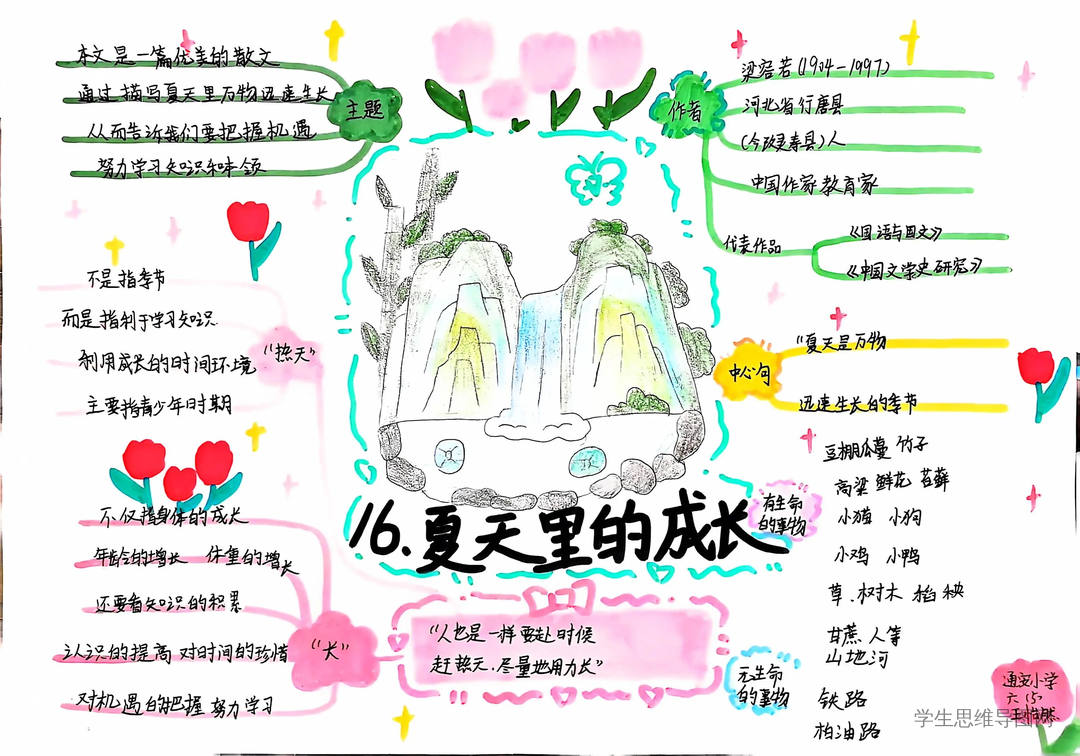 本文是一篇优美的散文
通过描写夏天里万物迅速生长
从而告诉我们要把握机遇
努力学习知识和本领
主题
作者
梁容若(1904-1997)
河北省行唐县
(今改灵寿县)人
中国作家教育家
代表作品
《国语与国文》
《中国文学史研究》
不是指季节
而是指利于学习知识
利用成长的时间环境
主要指青少年时期
"热天"
中心句
"夏天是万物
迅速生长的季节
有生命
的事物
豆棚瓜蔓 竹子
高粱 鲜花 苔藓
小猫 小狗
小鸡 小鸭
草.树木 稻秧
甘蔗 人等
16.夏天里的成长
不仅指身体的成长
年龄的增长 体重的增长
还要看知识的积累
认识的提高 对时间的珍惜
对机遇的把握 努力学习
"长"
"人也是一样要赴时候
赶热天.尽量地用力长"
无生命
的事物
山地河
铁路
柏油路
六(5)
学生思维导图网